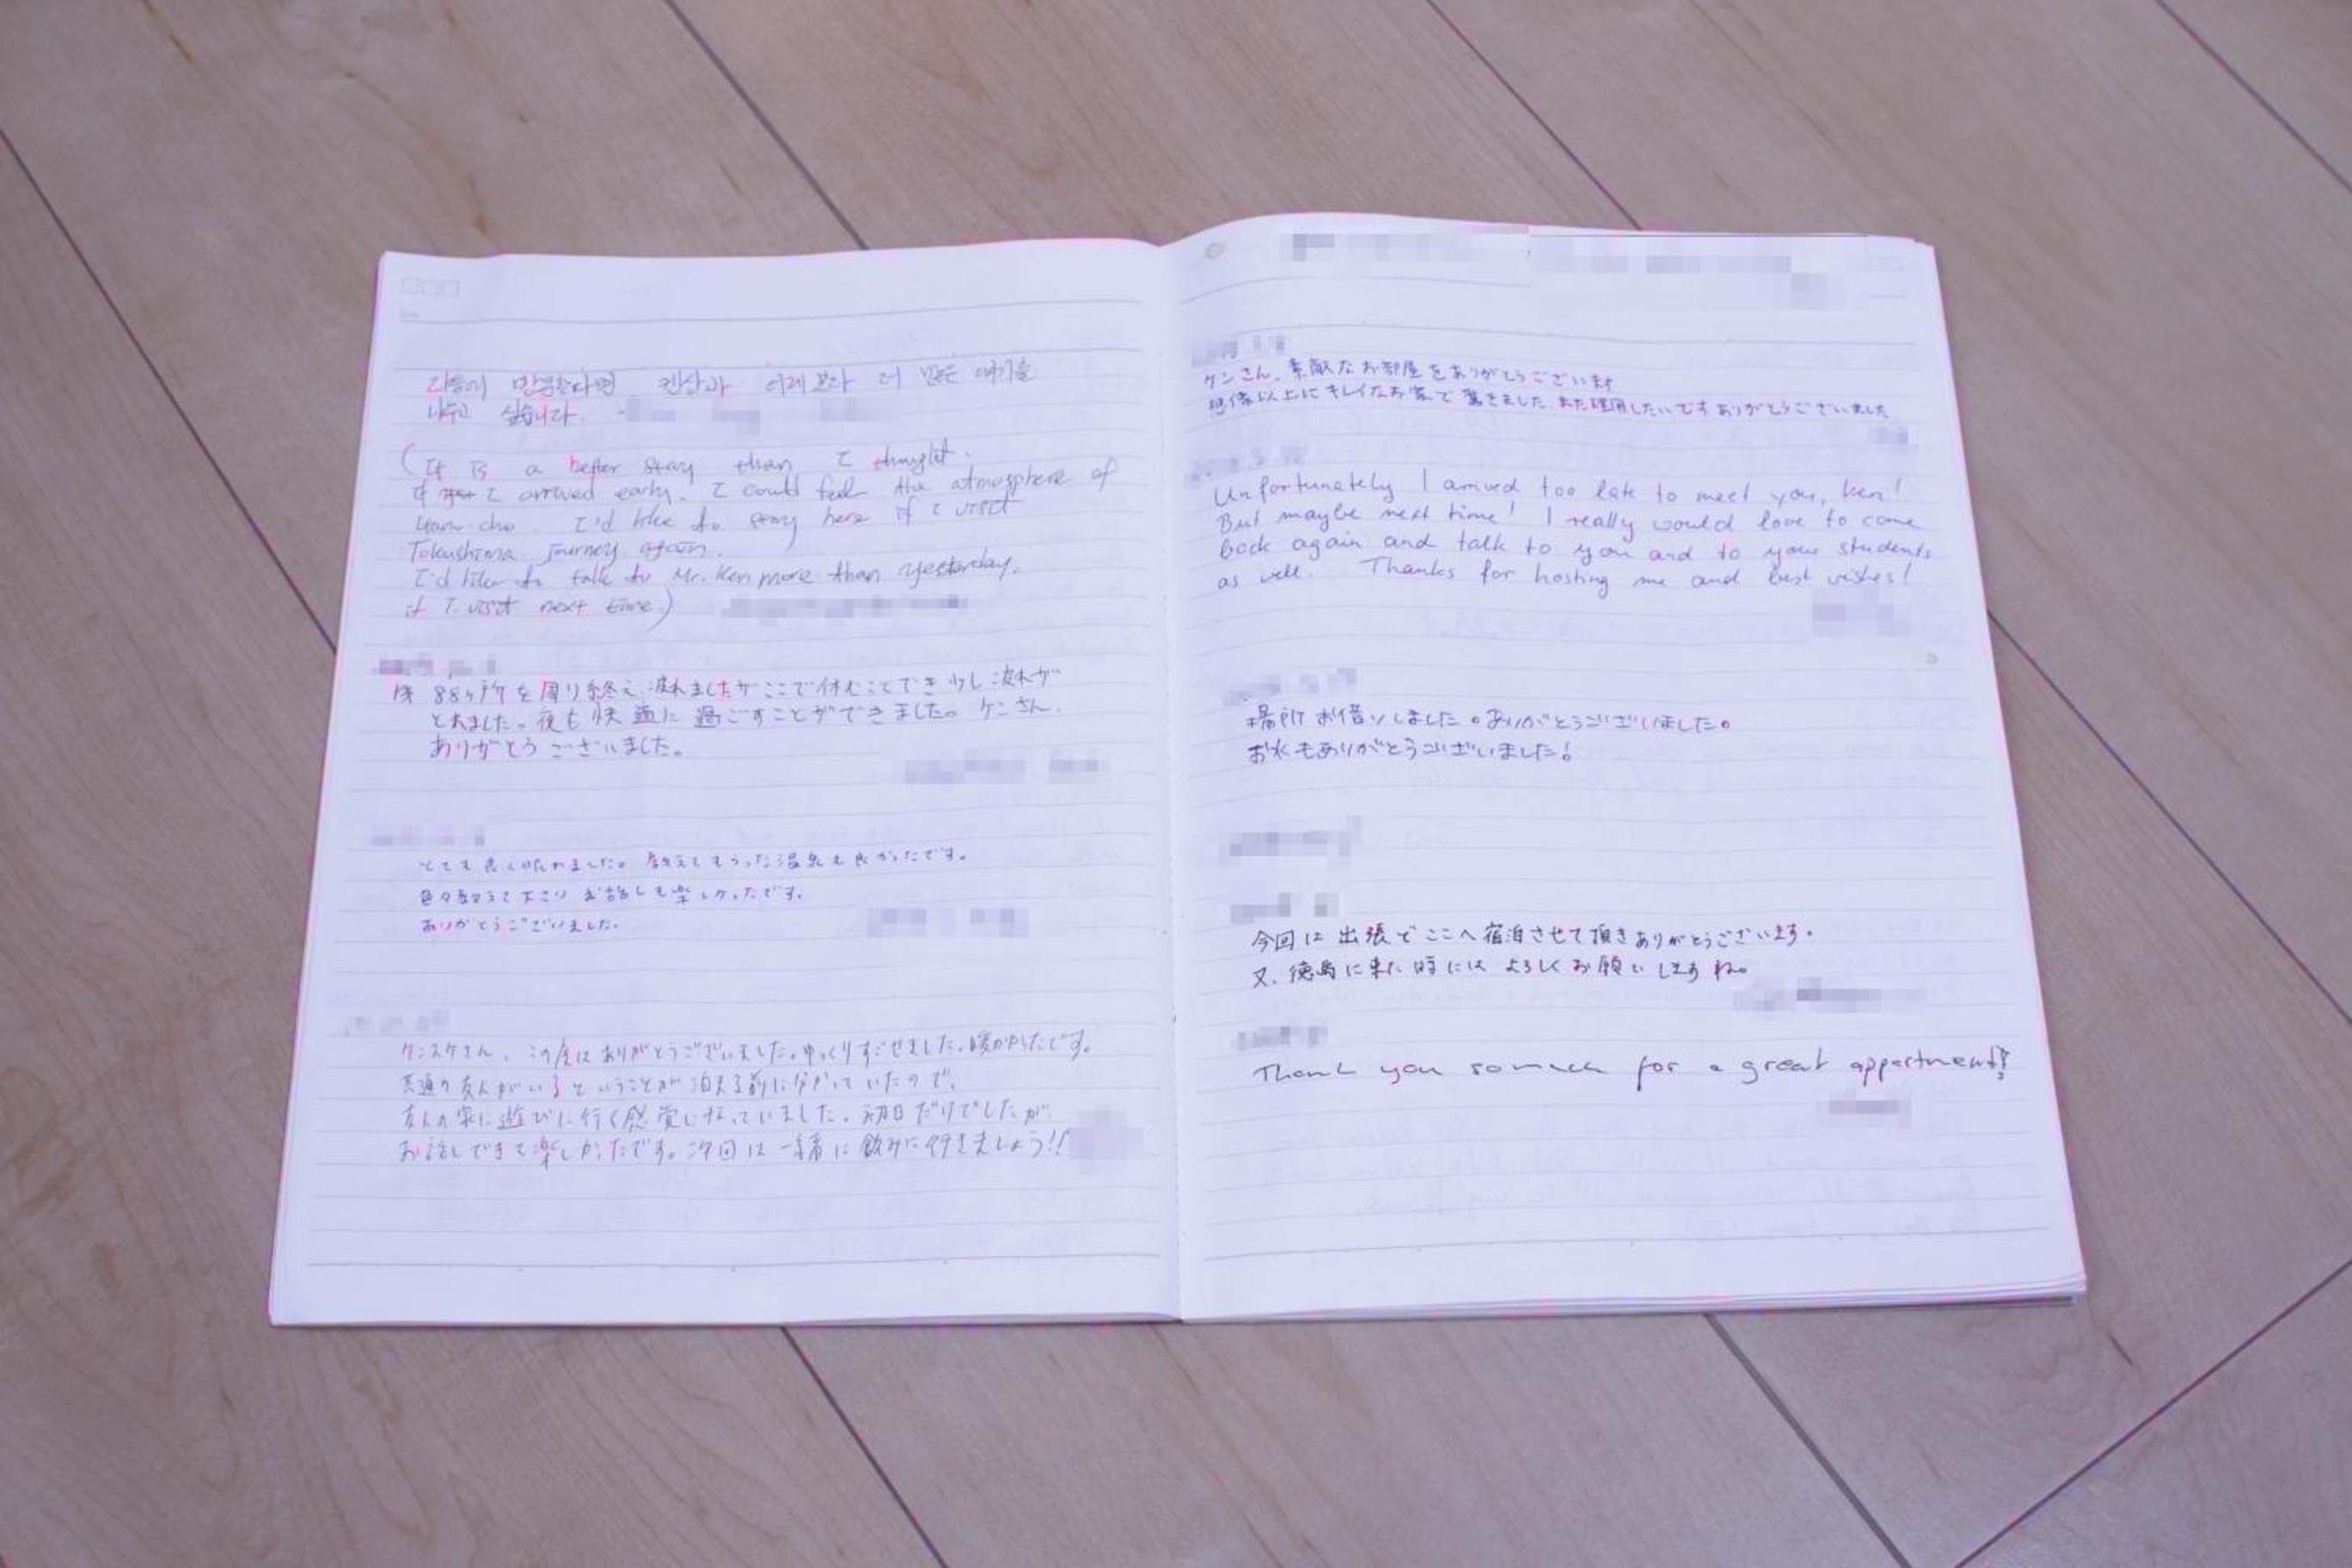 다음에 방문한다면 켄상과 어제보다 더 많은 얘기를
나누고 싶습니다.
(It is a better stay than I thought.
if I arrived early. I could feel the atmosphere of
cho I'd like to stay here if I visit
Tokushima journey again.
I'd like to talk to Mr. Ken more than yesterday.
if I visit next time.)
88ヶ所を周り終え、疲れましたがここで休むことでき少し疲れが
とれました。夜も快適に過ごすことができました。ケンさん、
ありがとうございました。
とても良く眠れました。教えてもらった温泉も良かったです。
色々教えて下さり お話しも楽しかったです。
ありがとうございました。
ケンスケさん、この度はありがとうございました。ゆっくりすごせました。暖かかったです。
共通の友人がいるということが泊まる前に分かっていたので、
友人の家に遊びに行く感覚になっていました。初日だけでしたが
お話しできて楽しかったです。次回は一緒に飲みに行きましょう!!
ケンさん、素敵なお部屋をありがとうございます
想像以上にキレイなお家で驚きました また利用したいです ありがとうございました
Unfortunately I arrived too late to meet you, Ken!
But maybe next time! I really would love to come
back again and talk to you and to your students
as well. Thanks for hosting me and best wishes!
場所お借りしました。ありがとうございました。
お水もありがとうございました!
今回は出張でここへ宿泊させて頂きありがとうございます。
又、徳島に来た時にはよろしくお願いしますね。
Thank you so much for a great appartment!